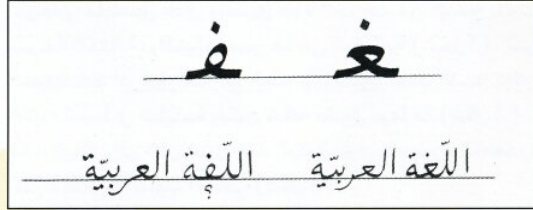 غـ فـ
اللّغة العربيّة اللّفة العربيّة
؟